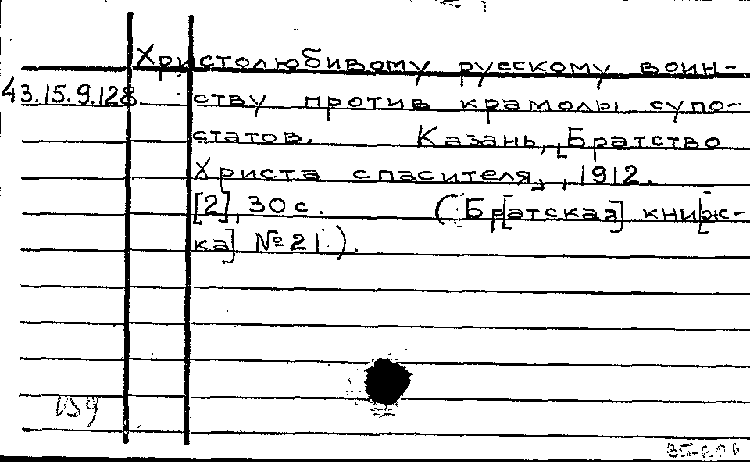 Христолюбивому русскому воин-
43.15.9.128 ству против крамолы супо-
статов. Казань, [Братство
Христа спасителя], 1912.
[2], 30 с. (Бр[атская] книж-
[ка] № 21).
159